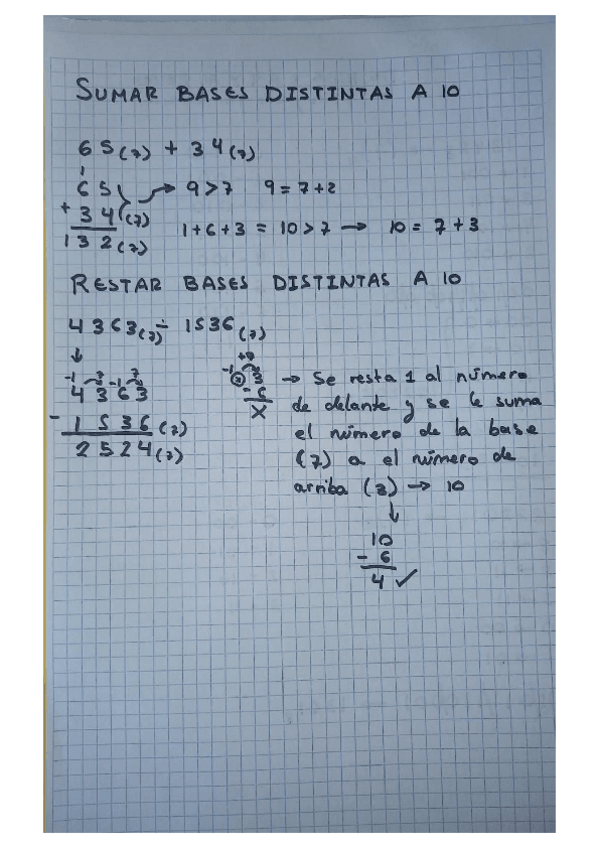 SUMAR BASES DISTINTAS A 10
65(7) + 34(7)
1
65
+ 34(7)
132(7)
→ 9 > 7 9 = 7 + 2
1 + 6 + 3 = 10 > 7 → 10 = 7 + 3
RESTAR BASES DISTINTAS A 10
4363(7) - 1536(7)
↓
-1 7 -1 7
4 3 6 3
- 1 5 3 6 (7)
2 5 2 4 (7)
+7
-1
3
- 6
X
→ Se resta 1 al número
de delante y se le suma
el número de la base
(7) a el número de
arriba (3) → 10
↓
10
- 6
4 ✓